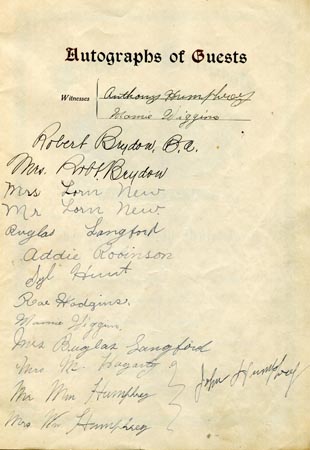 Autographs of Guests
Witnesses Anthony Humphrey
Mamie Wiggins
Robert Brydon, B.A.
Mrs. Robt. Brydon
Mrs Lorn New
Mr Lorn New
Langford
Addie Robinson
Syl Hunt
Rae Hodgins.
Mamie Wiggins.
Mrs Langford
Mrs M. Fogarty
Mr Wm Humphrey
John Humphrey
Mrs Wm Humphrey